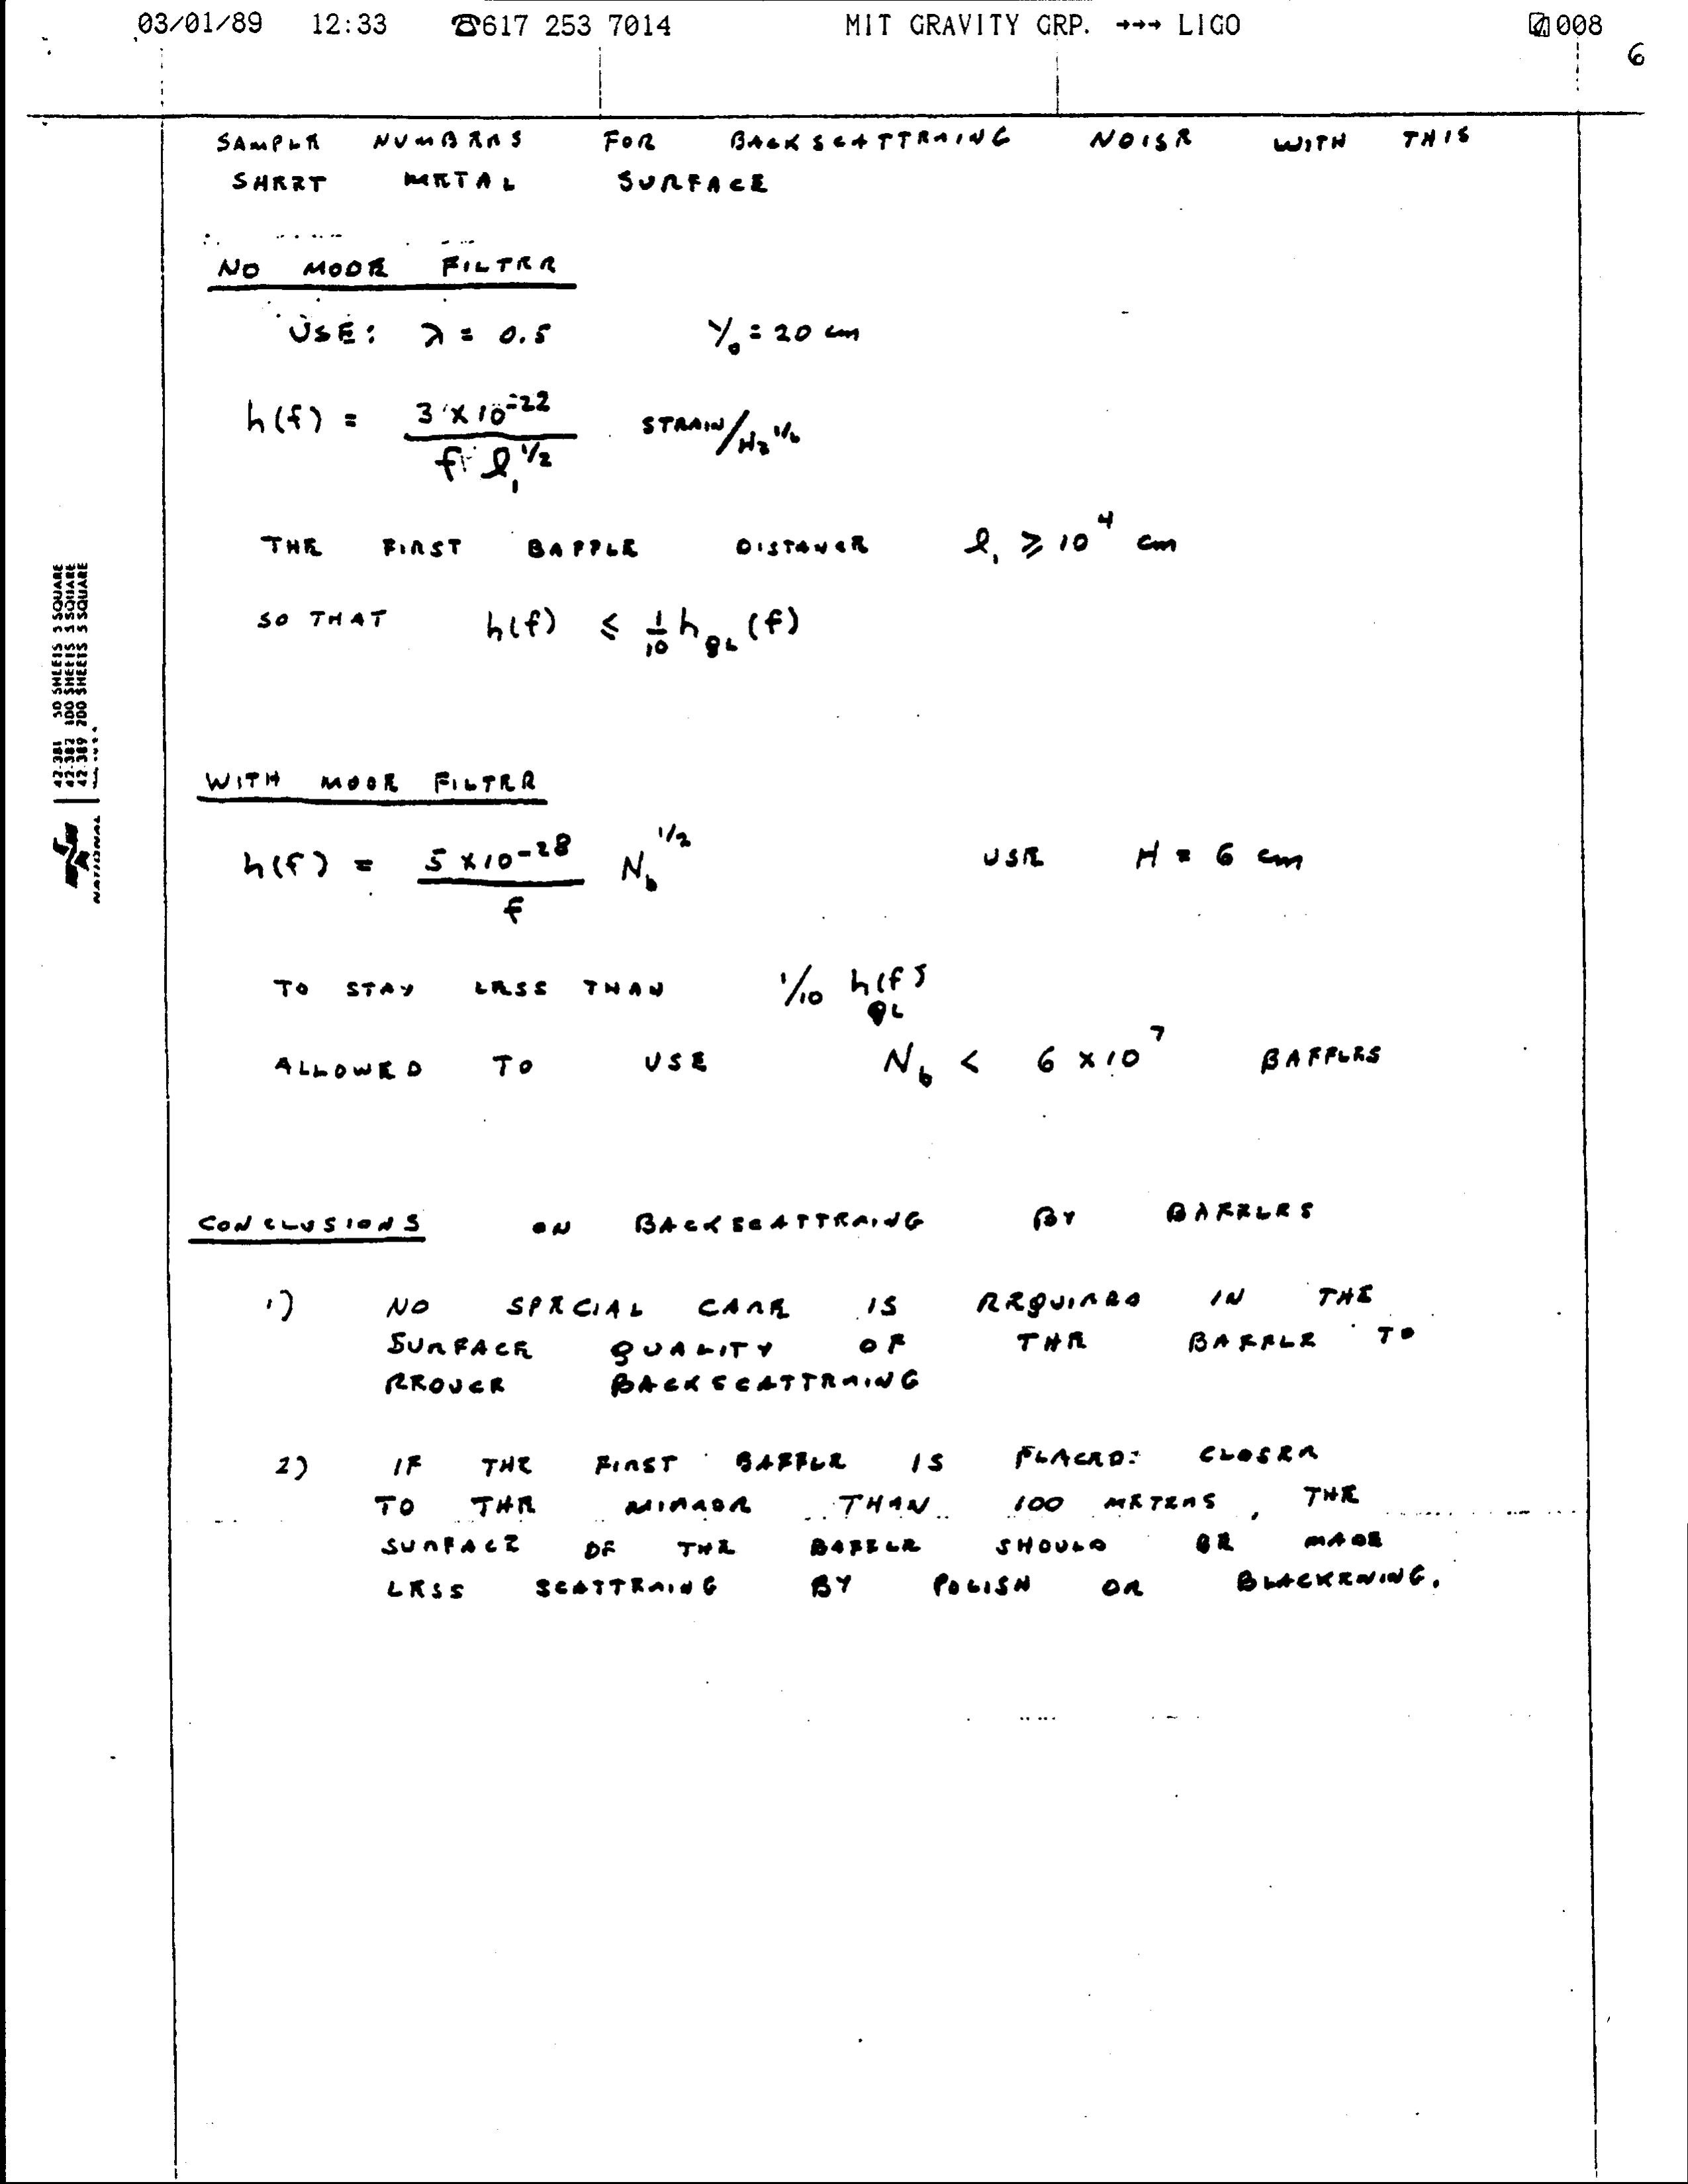 03/01/89 12:33 ☎617 253 7014 MIT GRAVITY GRP. →→→ LIGO 008
6
SAMPLE NUMBERS FOR BACKSCATTERING NOISE WITH THIS
SHEET METAL SURFACE
NO MODE FILTER
USE: λ = 0.5 Y₀ = 20 cm
h(f) = 3 × 10⁻²² / f l₁^1/2 STRAIN/Hz^1/2
THE FIRST BAFFLE DISTANCE l₁ ≥ 10⁴ cm
SO THAT h(f) ≤ 1/10 h_QL (f)
WITH MODE FILTER
h(f) = 5 × 10⁻²⁸ / f N_b^1/2 USE H = 6 cm
TO STAY LESS THAN 1/10 h(f)_QL
ALLOWED TO USE N_b < 6 × 10⁷ BAFFLES
CONCLUSIONS ON BACKSCATTERING BY BAFFLES
1) NO SPECIAL CARE IS REQUIRED IN THE
SURFACE QUALITY OF THE BAFFLE TO
REDUCE BACKSCATTERING
2) IF THE FIRST BAFFLE IS PLACED CLOSER
TO THE MIRROR THAN 100 METERS, THE
SURFACE OF THE BAFFLE SHOULD BE MADE
LESS SCATTERING BY POLISH OR BLACKENING.
42-381 50 SHEETS 5 SQUARE
42-382 100 SHEETS 5 SQUARE
42-389 200 SHEETS 5 SQUARE
NATIONAL